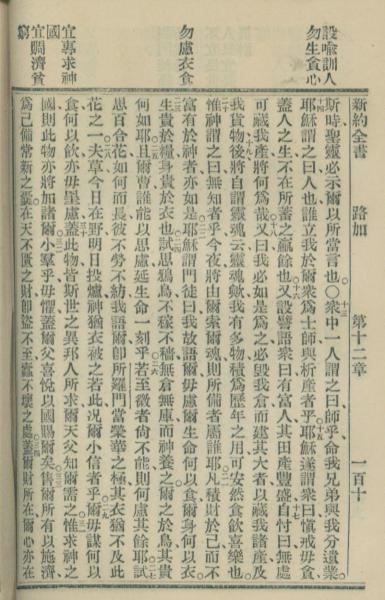 新約全書 路加 第十二章 一百十
設喻訓人
勿生貪心
勿慮衣食
宜專求神
國
宜賙濟貧
窮
斯時聖靈必示爾以所當言也〇衆中一人謂之曰師乎命我兄弟與我分遺業
耶穌謂之曰人也誰立我於爾衆爲士師與析產者乎耶穌遂謂衆曰愼戒毋貪
蓋人之生不在所蓄之贏餘也又設譬語衆曰有富人其田產豐盛自忖曰無處
可藏我產將何爲哉又曰我必如是爲之必毁我倉而建其大者以藏我諸產及
我貨物後將自謂靈魂云靈魂歟我有多物積爲歷年之用可安然食飲喜樂也
惟神謂之曰無知者乎今夜將由爾索爾魂則所備者屬誰耶凡積財於己而不
富有於神者亦如是耶穌謂門徒曰我故語爾毋慮爾生命何以食爾身何以衣
生貴於糧身貴於衣也試思鴉鳥不稼不穡無倉無庫而神養之爾之於鳥其貴
何如耶且爾曹誰能以思慮延生命一刻乎若至微者尙不能則何慮其餘耶試
思百合花如何而長彼不勞不紡我語爾卽所羅門當榮華之極其衣猶不及此
花之一夫草今日在野明日投爐神猶衣被之若此况爾小信者乎爾毋謀何以
食何以飲亦毋皇慮蓋此物皆斯世之異邦人所求爾天父知爾需之惟求神之
國則此物亦將加諸爾小羣乎毋懼蓋爾父喜悅以國賜爾矣售所有以施濟
爲己備常新之囊在天不匱之財卽盜不至蠹不壞之處蓋爾財所在爾心亦在